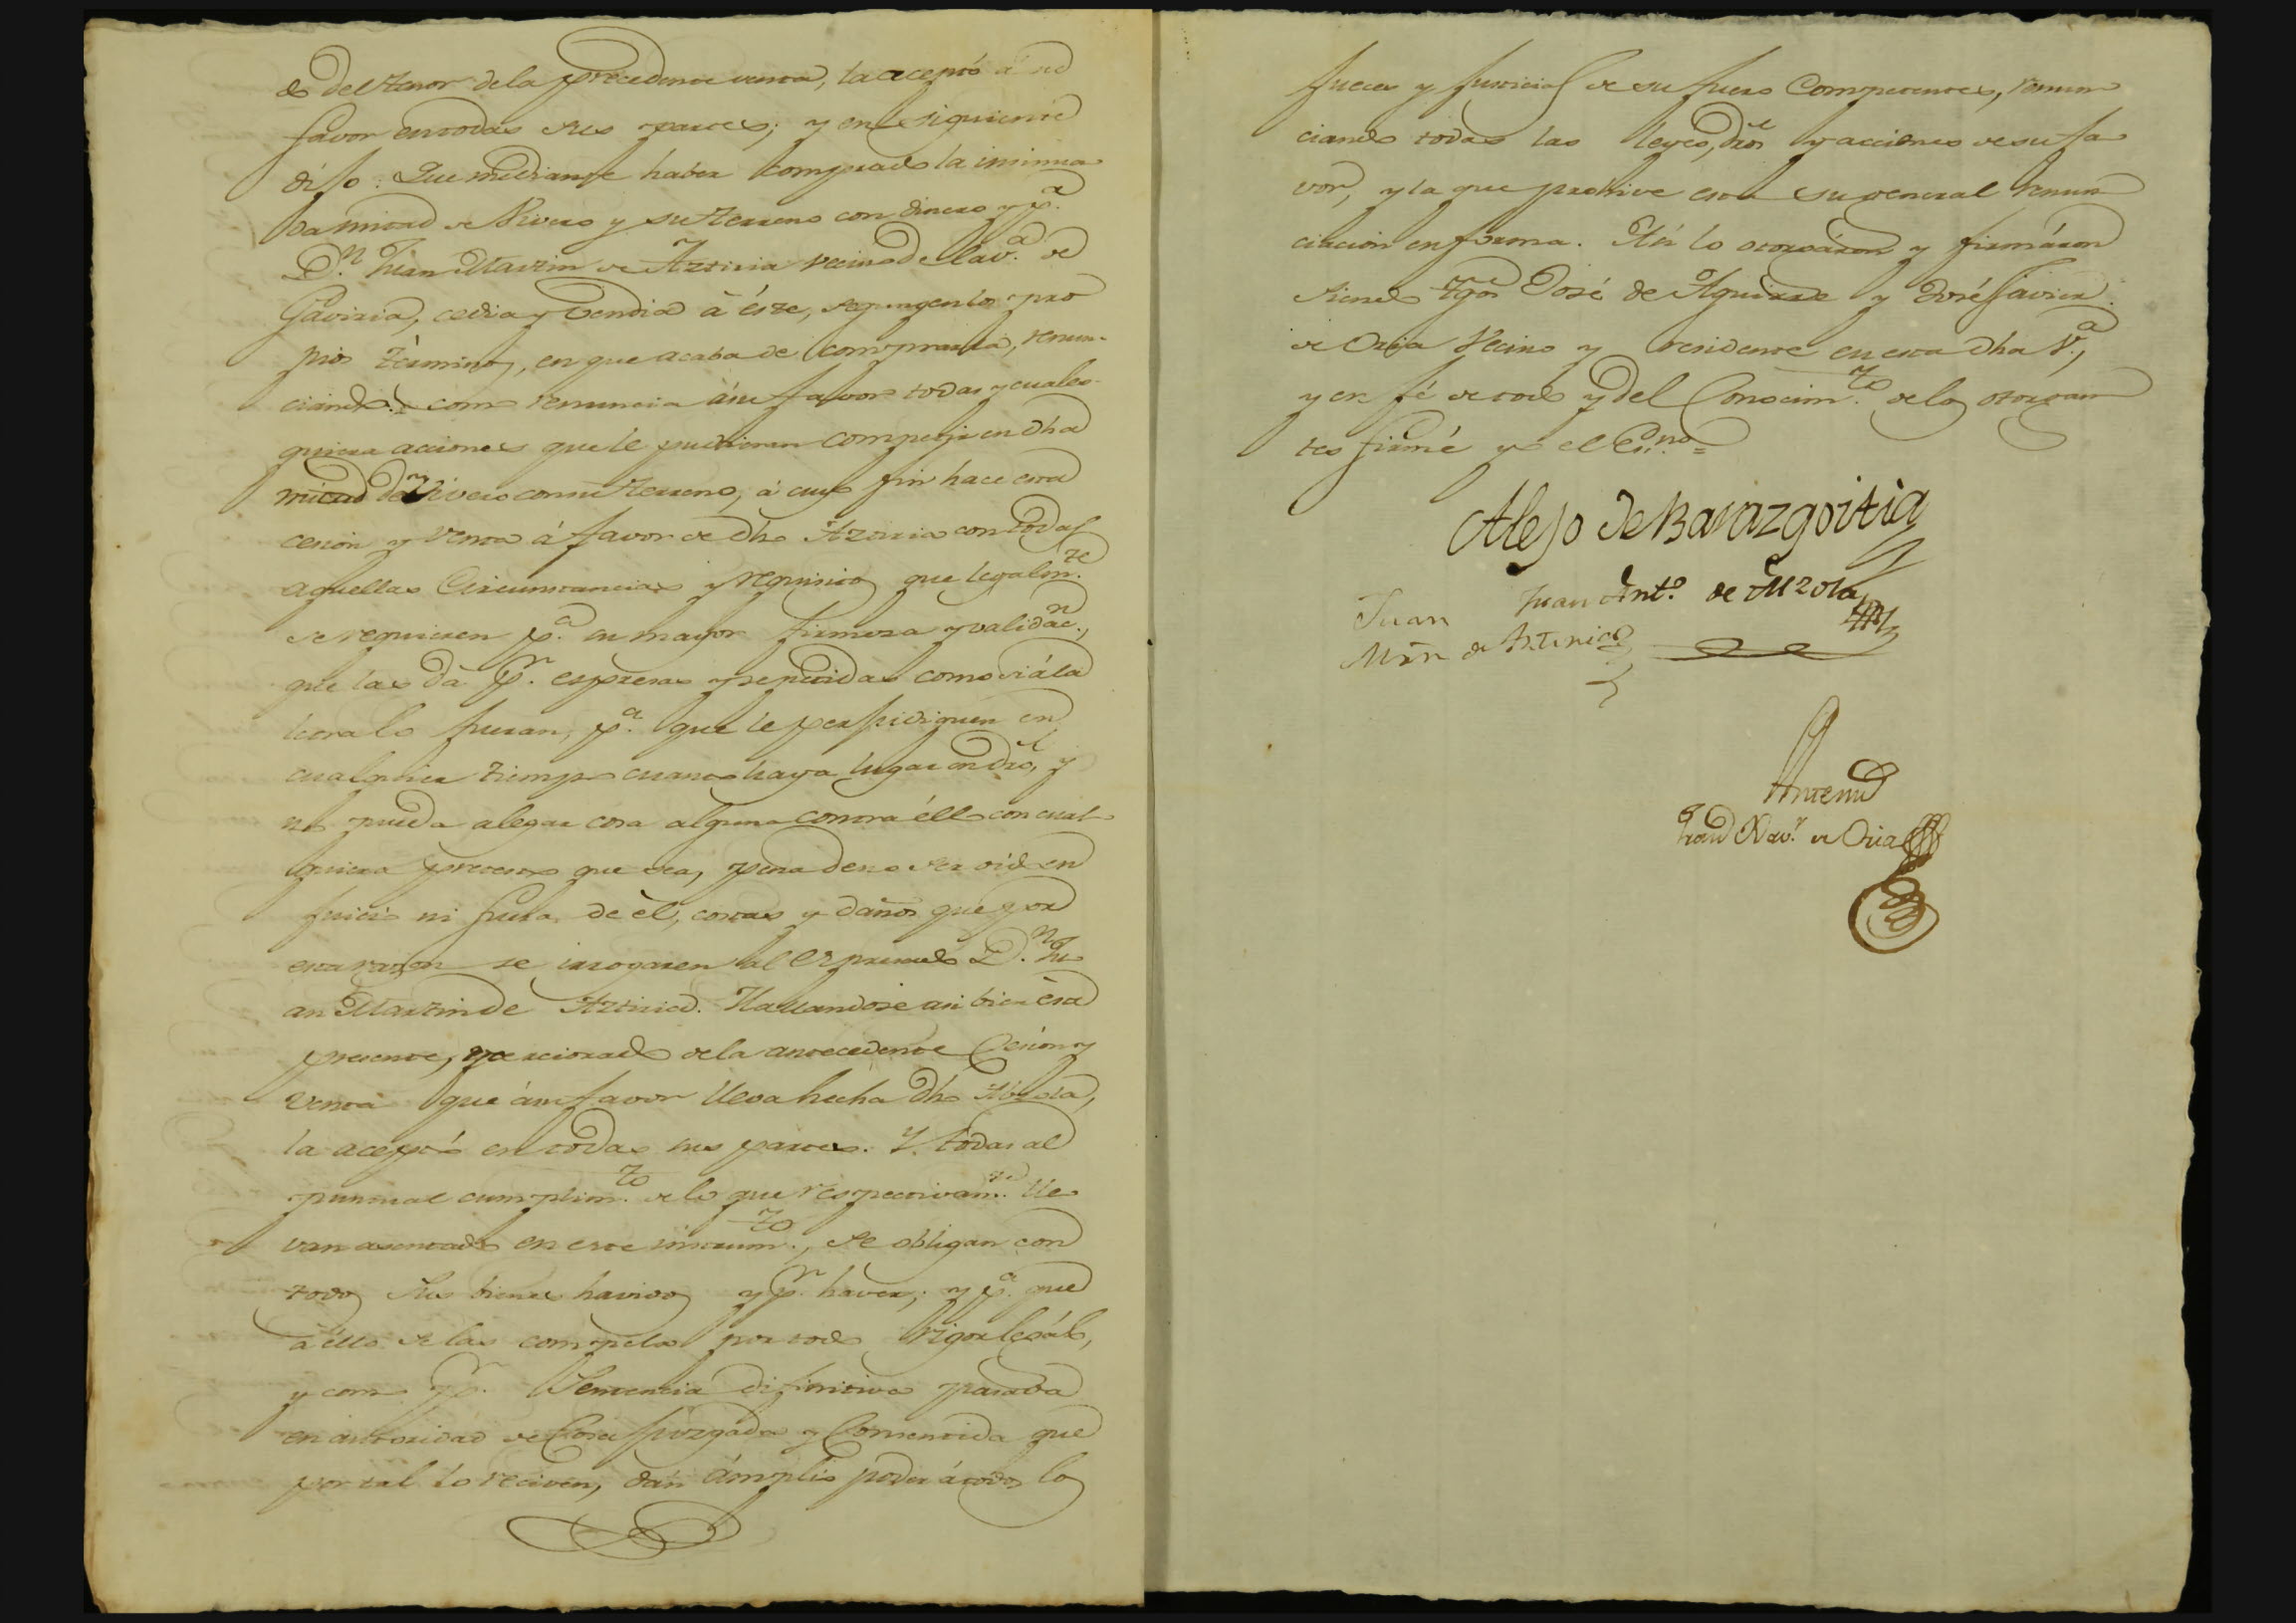 do del tenor de la precedente venta, la aceptó a su
favor en todas sus partes; y en siguiente
dijo: Que mediante haber comprado la insinua
da mitad de Vivero y su terreno con dinero y p.ª
D.n Juan Martin de Aztiria vecino de la v.ª de
Gaviria, cedia y vendia à éste, segun y en los pro
pios términos, en que acaba de comprarla, renun-
ciando como renuncia á su favor todas y cuales-
quiera acciones que le pudieran competir en dha
mitad de Vivero con su terreno, á cuyo fin hace esta
cesion y venta á favor de dho Aztiria con todas
aquellas circunstancias y requisitos que legalm.te
se requieren p.ª su mayor firmeza y validac.n,
que las dá p.r espresas y repetidas como si á la
letra lo fueran, p.ª que le perjudiquen en
cualquier tiempo cuanto haya lugar en dro, y
no pueda alegar cosa alguna contra éllo con cual-
quiera pretexto que sea, pena de no ser oido en
juicio ni fuera de él, costas y daños que por
esta razon se irrogaren al espresado D.n Ju
an Martin de Aztiria. Hallandose asi bien ésta
presente, y cerciorado de la antecedente Cesion y
venta que á su favor lleva hecha dho Alzola,
la aceptó en todas sus partes. Y todas al
puntual cumplim.to de lo que respectivam.te lle
van asentado en este instrum.to, se obligan con
todos sus bienes havidos y p.r haver; y p.ª que
à ello se las compela por todo rigor legál,
y como p.r Sentencia difinitiva pasada
en autoridad de Cosa juzgada y Consentida que
por tal lo reciven, dán ámplio poder á todos los
Jueces y Justicias de su fuero Competentes, renun
ciando todas las leyes, dros y acciones de su fa
vor, y la que prohive esta su general renun
ciacion en forma. Asi lo otorgáron y firmáron
siendo tgos José de Aguirre y José Javier
de Oria Vecino y residente en esta dha V.ª,
y en fé de todo y del Conocim.to de los otorgan
tes firmé yo el Es.no =
Alejo de Barazgoitia
Juan Ant.º de Alzola
Juan
Mrn de Aztiria
Antemi
Xav.r de Oria